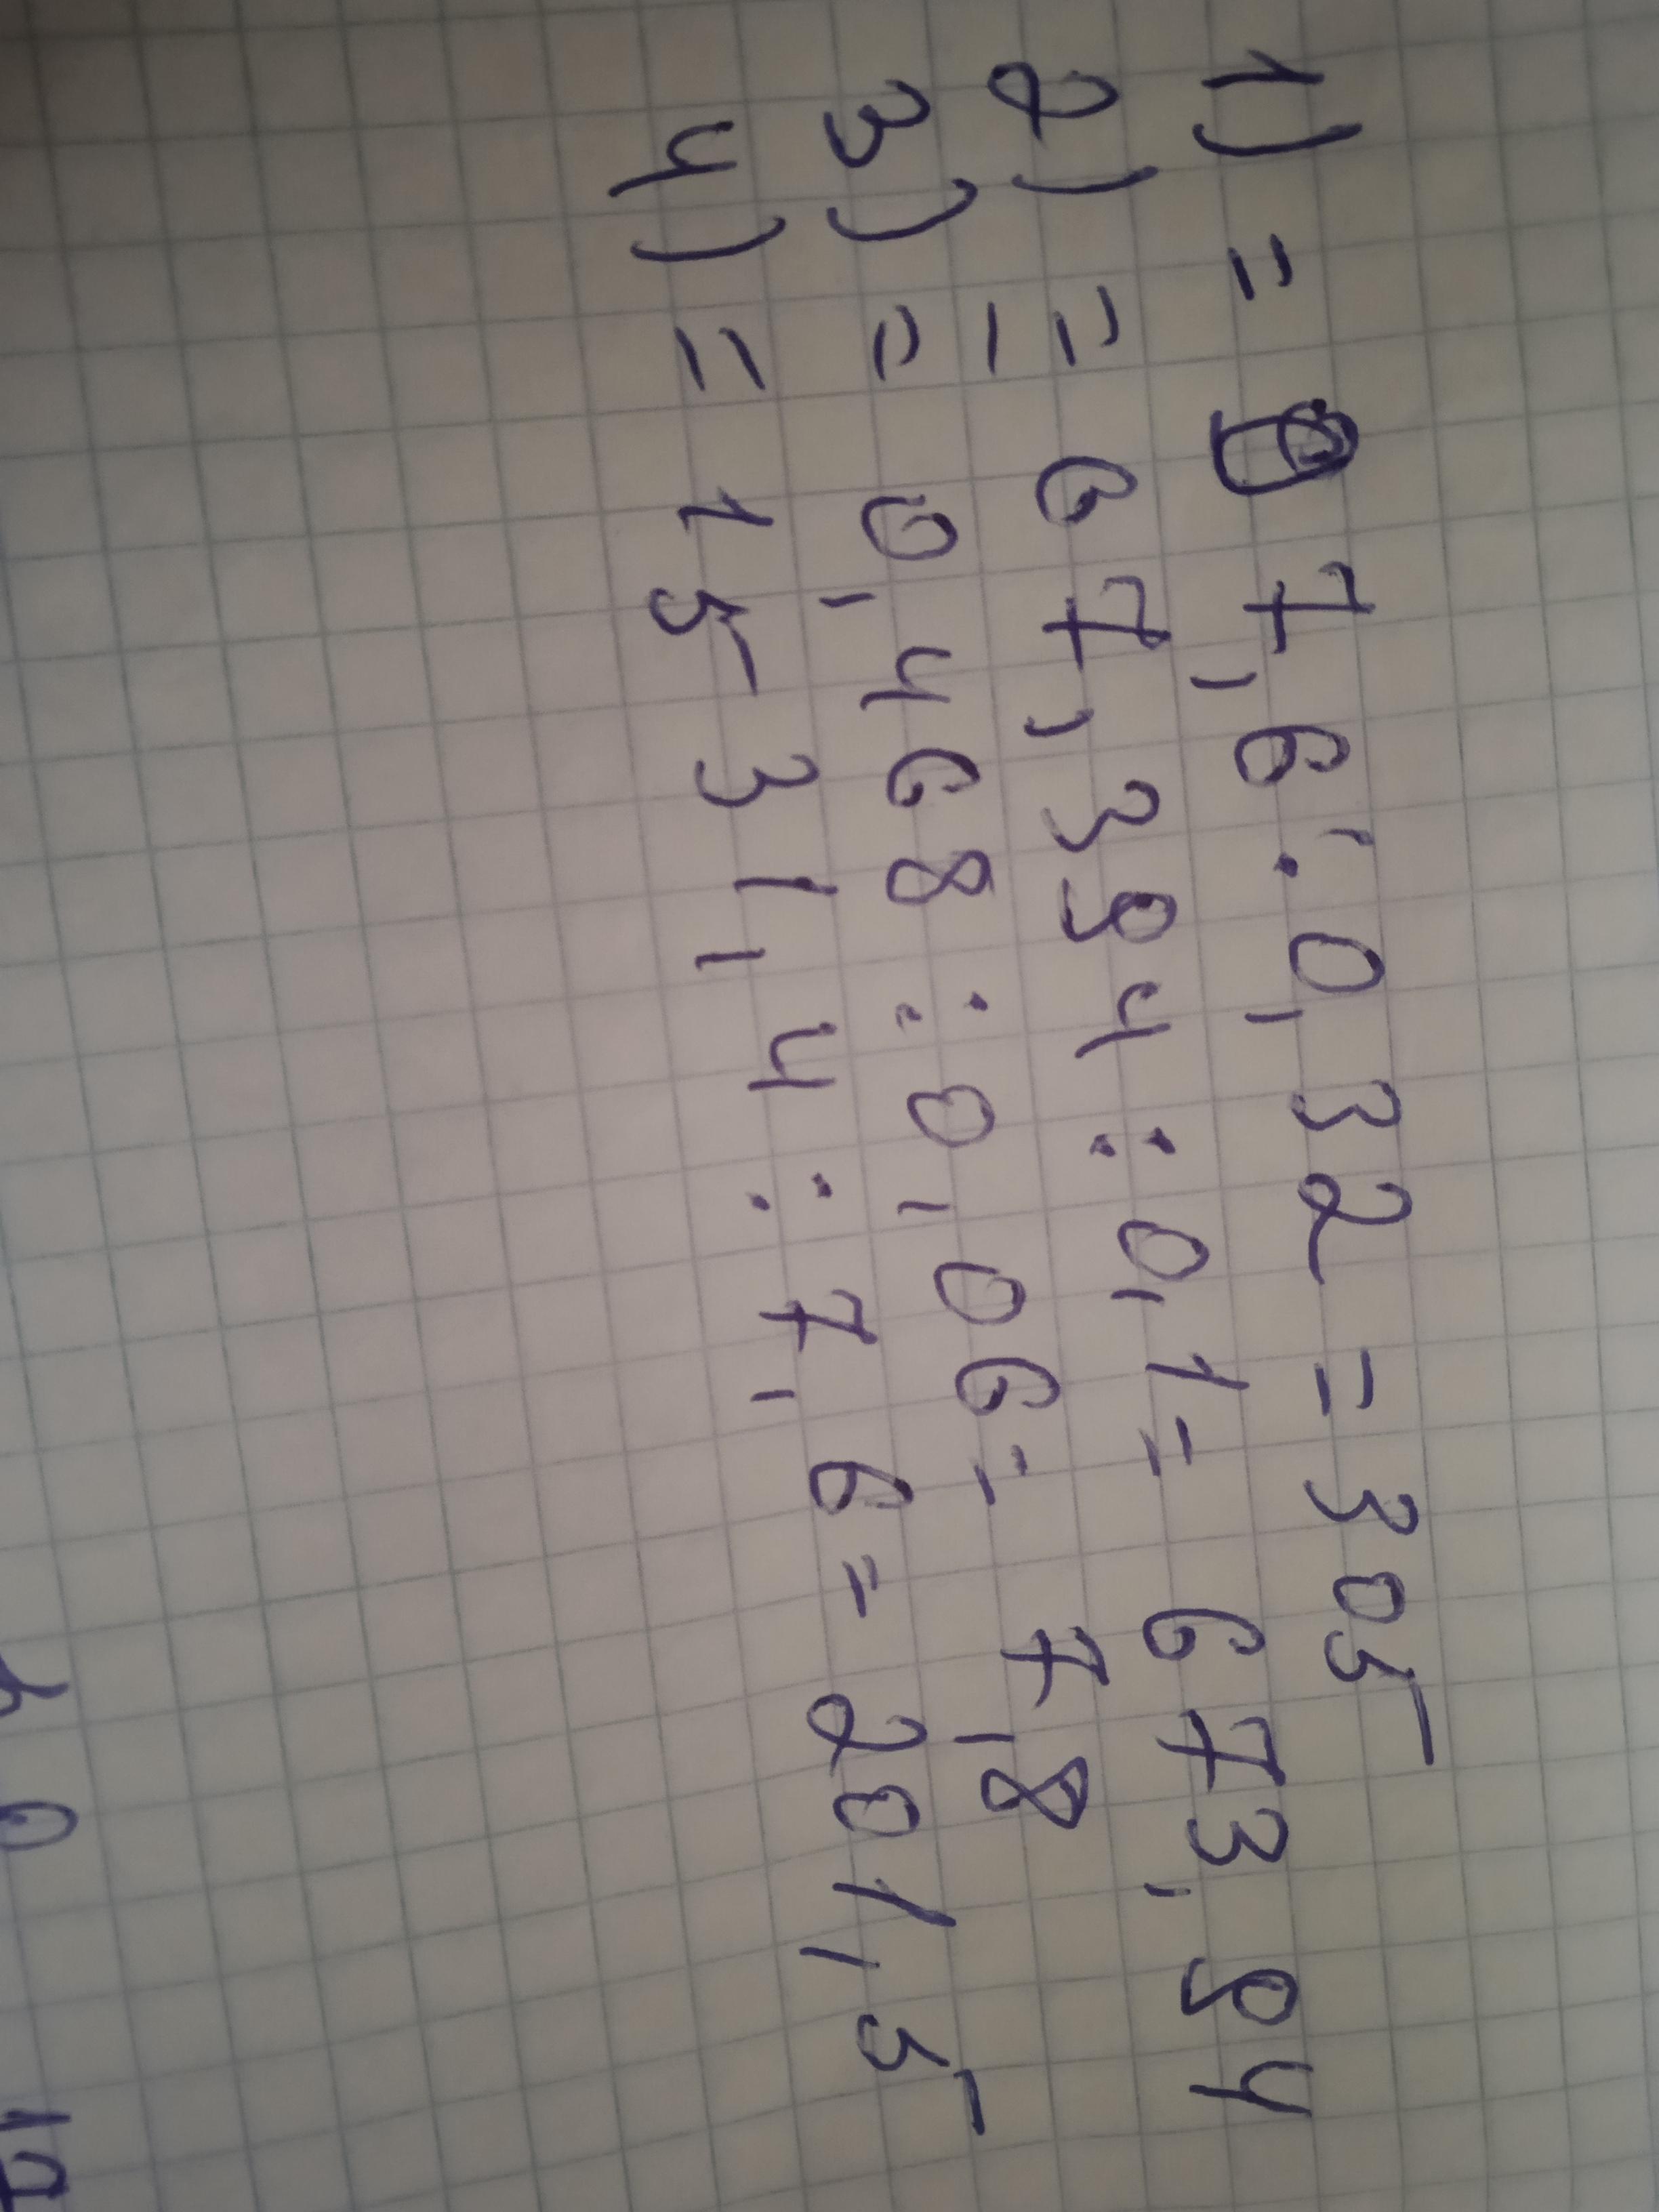 1) = 97,6 : 0,32 = 305
2) = 67,394 : 0,1 = 673,94
3) = 0,468 : 0,06 = 7,8
4) = 1531,4 : 7,6 = 201,5